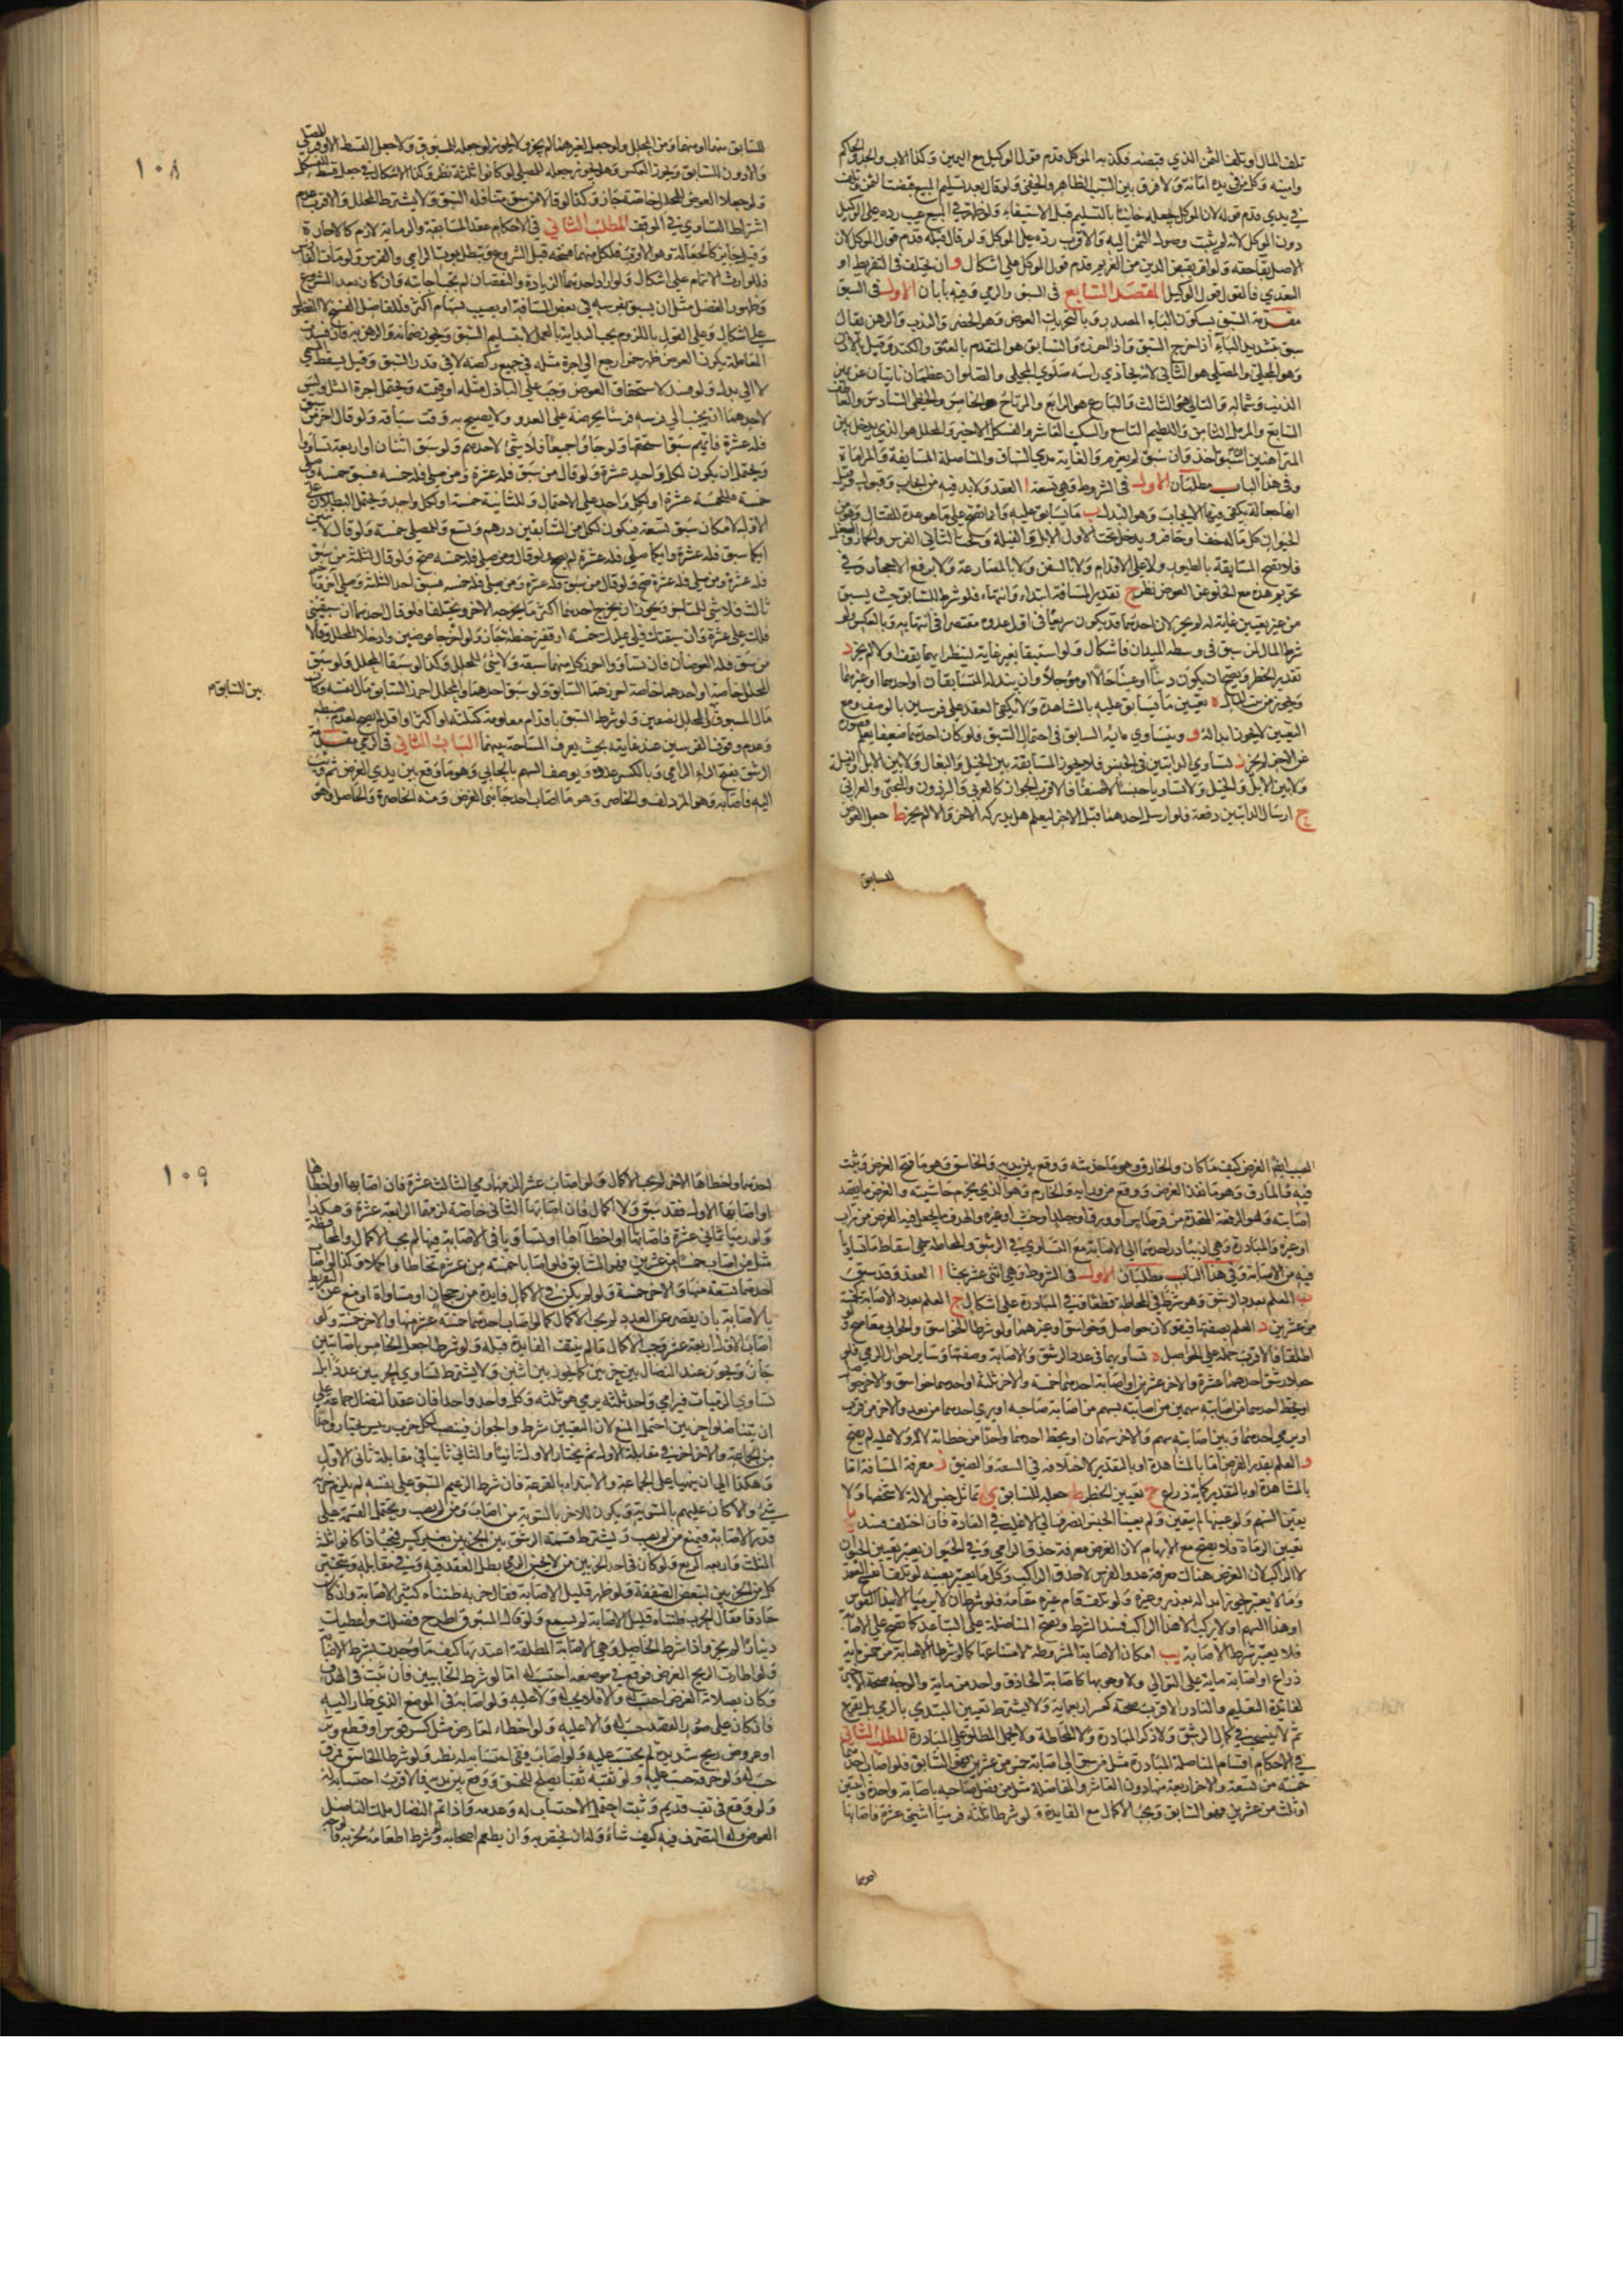 تلف المال او تلف الثمن الذي قبضه فكذبه الموكل قدم قول الوكيل مع اليمين وكذا الاب والجد والحاكم
وامينه وكل من في يده امانة ولا فرق بين السبب الظاهر والخفي ولو قال بعد تسليم المبيع قبضت الثمن وتلف
في يدي قدم قوله لان الموكل يجعله خائنا بالتسليم قبل الاستيفاء ولو ظهر في المبيع عيب رده على الوكيل
دون الموكل لانه لم يثبت وصول الثمن اليه والاقرب رده على الموكل ولو قال قبله قدم قول الموكل لان
الاصل بقاء حقه ولو اقر بقبض الدين من الغريم قدم قول الموكل على اشكال و ان يختلفا في التفريط او
التعدي فالقول قول الوكيل المقصد السابع في السبق والرمي وفيه بابان الاول في السبق
مقدمة السبق بسكون الباء المصدر وبالتحريك العوض وهو الخطر والندب والرهن يقال
سبق بتشديد الباء اذا اخرج السبق واذا احرزه والسابق هو المتقدم بالعنق والكتد وقيل بالاذن
وهو المجلي والمصلي هو الثاني لانه يحاذي راسه صلوي المجلي والصلوان عظمان ناتيان عن يمين
الذنب وشماله والتالي هو الثالث والبارع هو الرابع والمرتاح الخامس والحظي السادس والعاطف
السابع والمؤمل الثامن واللطيم التاسع والسكيت العاشر والفسكل الاخير والمحلل هو الذي يدخل بين
المتراهنين ان سبق اخذ وان سبق لم يغرم والغاية مدى السباق والمناضلة المسابقة والمراماة
وفي هذا الباب مطلبان الاول في الشروط وهي تسعة ا العقد ولا بد فيه من ايجاب وقبول وقيل
انها جعالة يكفي فيها الايجاب وهو البذل ب ما يسابق عليه وانما تصح على ما هو عدة للقتال وهو من
الحيوان كل ما له خف او حافر ويدخل تحت الاول الابل والفيلة وتحت الثاني الفرس والحمار والبغل
فلا تصح المسابقة بالطيور ولا على الاقدام ولا بالسفن ولا بالمصارعة ولا برفع الاحجار وفي
تحريم هذه مع الخلو عن العوض نظر ج تقدير المسافة ابتداء وانتهاء فلو شرطا للسابق حيث يسبق
من غير تعيين غاية له لم يجز لان احدهما قد يكون سريعا في اول عدوه مقتصرا في انتهائه وبالعكس ولو
شرط المال لمن سبق في وسط الميدان فاشكال ولو استبقا بغير غاية لينظر ايهما يقف اولا لم يجز د
تقدير الخطر ويصح ان يكون دينا او عينا حالا او مؤجلا وان يبذله المتسابقان او احدهما او غيرهما
ويجوز من بيت المال ه تعيين ما يسابق عليه بالمشاهدة ولا يكفي العقد على فرسين بالوصف ومع
التعيين لا يجوز ابداله و تساوي ما به السابق في احتمال السبق فلو كان احدهما ضعيفا يعلم قصوره
عن الاخر لم يجز ز تساوي الدابتين في الجنس فلا يجوز المسابقة بين الخيل والبغال ولا بين الابل والفيلة
ولا بين الابل والخيل ولو تساويا جنسا لا صنفا فالاقرب الجواز كالعربي والبرذون والبختي والعرابي
ح ارسال الدابتين دفعة فلو ارسل احدهما قبل الاخر ليعلم هل يدركه الاخر او لا لم يجز ط جعل العوض
للسابق
١٠٨
للسابق منهما او منهما ومن المحلل ولو جعل لغيرهما لم يجز ولا يجوز لو جعله للمسبوق ولا جعل القسط الاوفر للمصلي
والادون للسابق ويجوز العكس وهل يجوز جعله للمصلي لو كانوا ثلثة نظر وكذا الاشكال في جعل قسط للفسكل
ولو جعلا العوض للمحلل خاصة جاز وكذا لو قالا من سبق منا فله السبق ولا يشترط المحلل والاقرب عدم
اشتراط التساوي في الموقف المطلب الثاني في الاحكام عقد المسابقة والرماية لازم كالاجارة
وقيل جايز كالجعالة وهو الاقرب فلكل منهما فسخه قبل الشروع ويبطل بموت الرامي والفرس ولو مات الفارس
فللوارث الاتمام على اشكال ولو اراد احدهما الزيادة والنقصان لم تجب اجابته وان كان بعد الشروع
وظهور الفضل مثل ان يسبق بفرسه في بعض المسافة او يصيب بسهام اكثر فللفاضل الفسخ لا المفضول
على اشكال وعلى القول باللزوم يجب البداءة بالعمل لا بتسليم السبق ويجوز ضمانه والرهن به فان فسدت
المعاملة بكون العوض ظهر خمرا رجع الى اجرة مثله في جميع ركضه لا في قدر السبق وقيل يسقط المسمى
لا الى بدل ولو فسد لاستحقاق العوض وجب على الباذل مثله او قيمته ويحتمل اجرة المثل وليس
لاحدهما ان يجنب الى فرسه فرسا يحرضه على العدو ولا يصيح به وقت سباقه ولو قال اخر من سبق
فله عشرة فايهم سبق استحقها ولو جاؤا جميعا فلا شيء لاحدهم ولو سبق اثنان او اربعة تساووا
ويحتمل ان يكون لكل واحد عشرة ولو قال من سبق فله عشرة ومن صلى فله خمسة فسبق خمسة وصلى
خمسة فللخمسة عشرة او لكل واحد على الاحتمال وللثانية خمسة او لكل واحد ويحتمل البطلان على
الاول لامكان سبق تسعة فيكون لكل من السابقين درهم وتسع وللمصلي خمسة ولو قال لاثنين
ايكما سبق فله عشرة وايكما صلى فله عشرة لم يصح ولو قال ومن صلى فله خمسة صح ولو قال لثلثة من سبق
فله عشرة ومن صلى فله عشرة صح ولو قال من سبق فله عشرة ومن صلى فله خمسة فسبق احد الثلثة وصلى اخر وتاخر
ثالث فلا شي للمتاخر ويجوز ان يخرج احدهما اكثر مما يخرجه الاخر ويختلفا فلو قال احدهما ان سبقتني
فلك علي عشرة وان سبقتك فلي عليك خمسة او قفيز حنطة جاز ولو اخرجا عوضين وادخلا المحلل وقالا
من سبق فله العوضان فان تساووا احرز كل منهما سبقه ولا شيء للمحلل وكذا لو سبقا المحلل ولو سبق
المحلل خاصة او احدهما خاصة احرزهما السابق ولو سبق احدهما والمحلل احرز السابق مال نفسه وكان
مال المسبوق للمحلل نصفين ولو شرط السبق باقدام معلومة كثلثة او اكثر او اقل لم يصح لعدم ضبطه
بين السابق م
وعدم وقوف الفرسين عند غايته بحيث يعرف المساحة بينهما الباب الثاني في الرمي مقدمة
الرشق بفتح الراء الرمي وبالكسر عدده ويوصف السهم بالحابي وهو ما وقع بين يدي الغرض ثم وثب
اليه فاصابه وهو المزدلف والخاصر وهو ما اصاب احد جانبي الغرض ومنه الخاصرة والحاصل وهو
المصيب للغرض كيف ما كان والخارق وهو ما خدشه ووقع بين يديه والخاسق وهو ما فتح الغرض وثبت
فيه والمارق وهو ما نفذ الغرض ووقع من ورائه والخارم وهو الذي يخرم حاشيته والغرض ما يقصد
اصابته وهو الرقعة المتخذة من قرطاس او ورق او جلد او خشب او غيره والهدف ما يجعل فيه الغرض من تراب
او غيره والمبادرة وهي ان يبادر احدهما الى الاصابة مع التساوي في الرشق والمحاطة هي اسقاط ما تساويا
فيه من الاصابة وفي هذا الباب مطلبان الاول في الشروط وهي اثنى عشر بحثا ا العقد وقد سبق
ب العلم بعدد الرشق وهو شرط في المحاطة قطعا وفي المبادرة على اشكال ج العلم بعدد الاصابة كخمسة
من عشرين د العلم بصفتها فيقولان حواصل او خواسق او غيرهما ولو شرطا الخواسق والحوابي معا صح ولو
اطلقا فالاقرب حمله على الحواصل ه تساويهما في عدد الرشق والاصابة وصفتها وساير احوال الرمي فلو
جعلا رشق احدهما عشرة والاخر عشرين او اصابة احدهما خمسة والاخر ثلثة او احدهما خواسق والاخر حواصل
او يحط احدهما من اصابته سهمين من اصابته بسهم من اصابة صاحبه او يرمي احدهما من بعد والاخر من قرب
او يرمي احدهما وبين اصابعه سهم والاخر سهمان او يحط احدهما واحدا من خطائه لا له ولا عليه لم يصح
و العلم بقدر الغرض اما بالمشاهدة او بالتقدير لاختلافه في السعة والضيق ز معرفة المسافة اما
بالمشاهدة او بالتقدير كمائة ذراع ح تعيين الخطر ط جعله للسابق ي تماثل جنس الالة لا شخصها ولا
يتعين السهم ولو عينها لم يتعين ولو لم يعينا الجنس انصرف الى الاغلب في العادة فان اختلف فسد يا
تعيين الرماة فلا يصح مع الابهام لان الغرض معرفة حذق الرامي وفي الحيوان يعتبر تعيين الحيوان
لا الراكب لان الغرض هناك معرفة عدو الفرس لا حذق الراكب وكل ما يعتبر تعيينه لو تلف انفسخ العقد
وما لا يعتبر يجوز ابداله لعذر وغيره ولو تلف قام غيره مقامه فلو شرطا ان لا يرميا الا بهذا القوس
او هذا السهم او لا يركب الا هذا الراكب فسد الشرط ويصح المناضلة على التباعد كما تصح على الاصابة
فلا يعتبر شرط الاصابة يب امكان الاصابة المشروطة لا ممتنعها كما لو شرطا الاصابة من خمسمائة
ذراع او اصابة مائة على التوالي ولا وجوبها كاصابة الحاذق واحد من مائة والوجه صحة الاخير
لفائدة التعليم والنادر الاقرب صحة ولا يشترط تعيين المبتدي بالرمي بل يقرع
ثم لا ينسحب في كل الرشق ولا ذكر المبادرة ولا المحاطة ولا يحمل المطلق على المبادرة المطلب الثاني
في الاحكام اقسام المناضلة المبادرة مثل من سبق الى اصابة خمس من عشرين فهو السابق فلو اصاب احدهما
خمسة من تسعة والاخر اربعة منها دون العاشر والمفاضلة مثل من فضل صاحبه باصابة واحدة او اثنتين
او ثلث من عشرين فهو السابق ويجب الاكمال مع الفايدة ولو شرطا ثلثة فرميا اثني عشرة فاصابها
احدهما
١٠٩
احدهما واخطاها الاخر لم يجب الاكمال ولو اصاب عشرا لزمهما رمي الثالث عشرة فان اصابها او اخطاها
او اصابها الاول فقد سبق ولا اكمال فان اصابها الثاني خاصة لزمهما الرابعة عشرة وهكذا
ولو رميا ثماني عشرة فاصاباها او اخطاآها او تساويا في الاصابة فيها لم يجب الاكمال والمحاطة
مثل من اصاب خمسا من عشرين فهو السابق فلو اصابا خمسة من عشرة تحاطا واكملا وكذا لو اصاب
احدهما تسعة منها والاخر خمسة ولو لم يكن في الاكمال فايدة من رجحان او مساواة او منع عن التفريط
بالاصابة بان يقصر عن العدد لم يجب الاكمال كما لو اصاب احدهما خمسة عشر منها والاخر خمسة ولو
اصابا الاول اربعة عشر وجب الاكمال ما لم ينتف الفايدة قبله ولو شرطا جعل الخامس باصابتين
جاز ويجوز عقد النضال بين حزبين كما يجوز بين اثنين ولا يشترط تساوي الحزبين عددا بل
تساوي الرميات فيرامي واحد ثلثة يرمي هو ثلثة وكل واحد واحدا فان عقدا لنضال جماعة على
ان يتناضلوا حزبين احتمل المنع لان التعيين شرط والجواز فينصب لكل حزب رئيس يختار واحدا
من الجماعة والاخر اخر في مقابلة الاول ثم يختار الاول ثانيا والثاني ثانيا في مقابلة ثاني الاول
وهكذا الى ان ينتهيا على الجماعة والابتداء بالقرعة فان شرط الزعيم السبق على نفسه لم يلزم حزبه
شيء والا كان عليهم بالسوية ويكون للاخر بالسوية من اصاب ومن لم يصب ويحتمل القسمة على
قدر الاصابة فيمنع من لم يصب ويشترط قسمة الرشق بين الحزبين بغير كسر فيجب اذا كانوا ثلثة
الثلث واربعة الربع ولو كان في احد الحزبين من لا يحسن الرمي بطل العقد فيه وفي مقابله ويتخير
كل من الحزبين لتبعض الصفقة ولو ظهر قليل الاصابة فقال حزبه ظنناه كثير الاصابة وان كان
حاذقا فقال الحزب ظنناه قليل الاصابة لم يسمع ولو قال المسبوق اطرح فضلك واعطيك
دينارا لم يجز واذا شرط الحاصل وهي الاصابة المطلقة اعتد بها كيف ما وجدت بشرط الاصابة
ولو اطارت الريح الغرض فوقع في موضعه احتسب له اما لو شرط الخاسق فان ثبت في الهدف
وكان بصلابة الغرض احتسب له والا فلا يحسب له ولا عليه ولو اصابه في الموضع الذي طار اليه
فان كان على صوب المقصد حسب له والا عليه ولو اخطاء لعارض مثل كسر قوس او قطع وتر
او عروض ريح شديدة لم يحتسب عليه ولو اصاب ففي احتسابه له نظر ولو شرطا الخاسق فمرق
حسب له ولو خرقه حسب عليه ولو ثقبه ثقبا يصلح للخسق ووقع بين يديه فالاقرب احتسابه له
ولو وقع في ثقب قديم وثبت احتمل الاحتساب له وعدمه واذا تم النضال ملك الناضل
العوض وله التصرف فيه كيف شاء وله ان يختص به وان يطعم اصحابه ولو شرط اطعامه لحزبه فالوجه